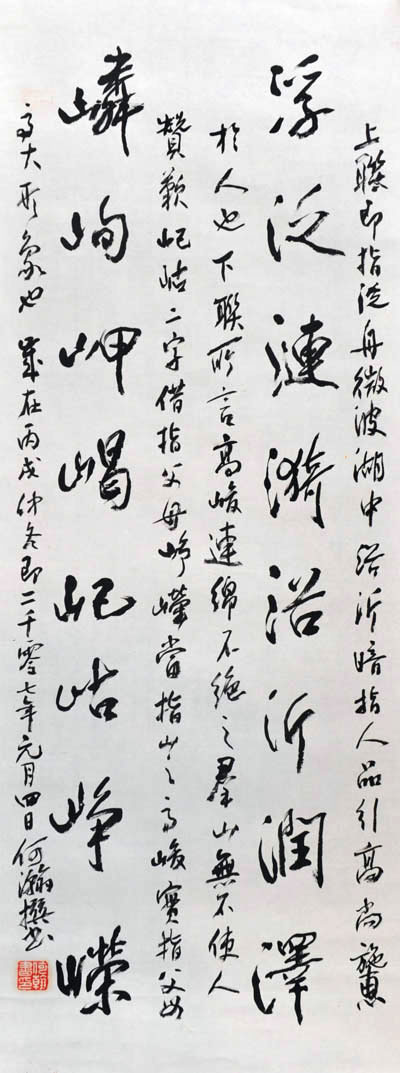 上聯即指泛舟微波湖中浴沂暗指人品引高尚施惠
浮泛漣漪浴沂潤澤
於人也下聯所言高峻連綿不絕之羣山無不使人
贊歎屺岵二字借指父母崢嶸當指山之高峻實指父母
嶙峋岬嵑屺岵崢嶸
高大形象也 歲在丙戌仲冬即二千零七年元月四日何瀚撰書